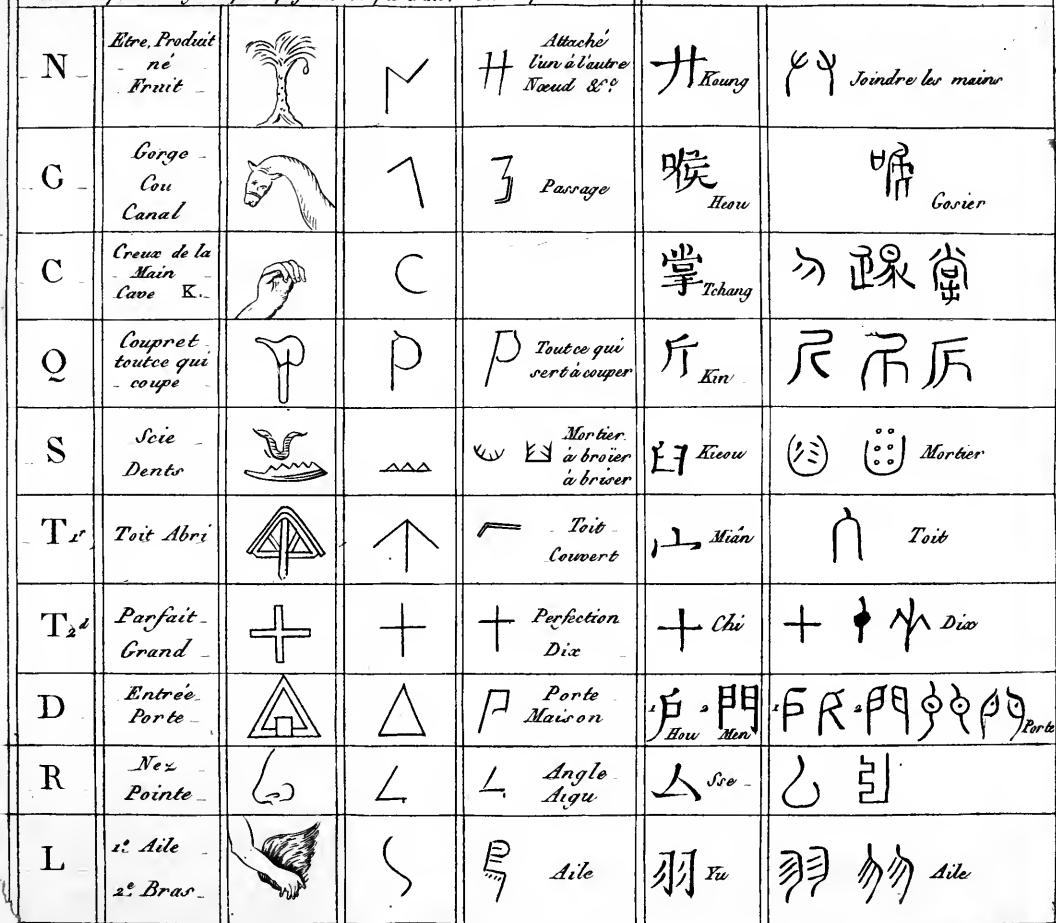 N
Etre, Produit
né
Fruit
Attaché
l'un à l'autre
Nœud &c.
廾 Koung
Joindre les mains
G
Gorge
Cou
Canal
Passage
喉 Heou
Gosier
C
Creux de la
Main
Cave K.
掌 Tchang
Q
Coupret
toutce qui
coupe
Toutce qui
sert à couper
斤 Kin
S
Scie
Dents
Mortier
à broïer
à briser
臼 Kieou
Mortier
T 1r
Toit Abri
Toit
Couvert
Miân
Toit
T 2d
Parfait
Grand
Perfection
Dix
十 Chi
Dix
D
Entrée
Porte
Porte
Maison
1 戶 2 門
Hou Men
1 2
Porte
R
Nez
Pointe
Angle
Aigu
Sse
L
1º Aile
2º Bras
Aile
羽 Yu
Aile